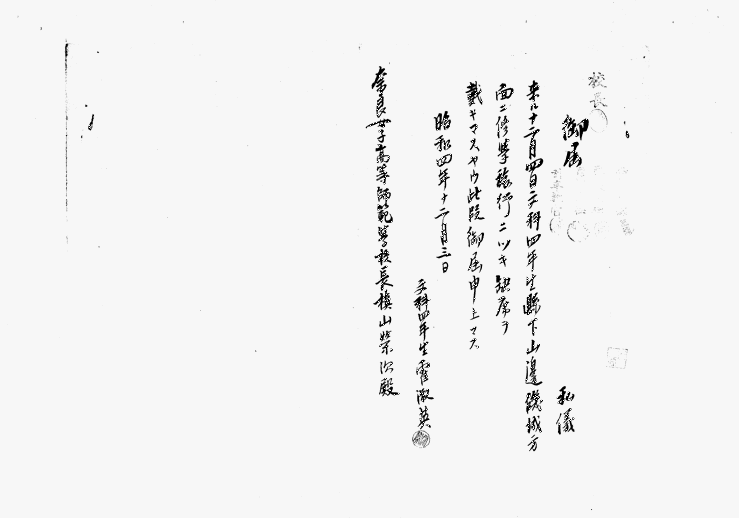 校長
御届
私儀
来ル十二月四日文科四年生縣下山邊磯城方
面ニ修學旅行ニツキ缺席ヲ
戴キマスヤウ此段御届申上マス
昭和四年十二月三日
文科四年生霍淑英
奈良女子高等師範學校長槇山榮次殿